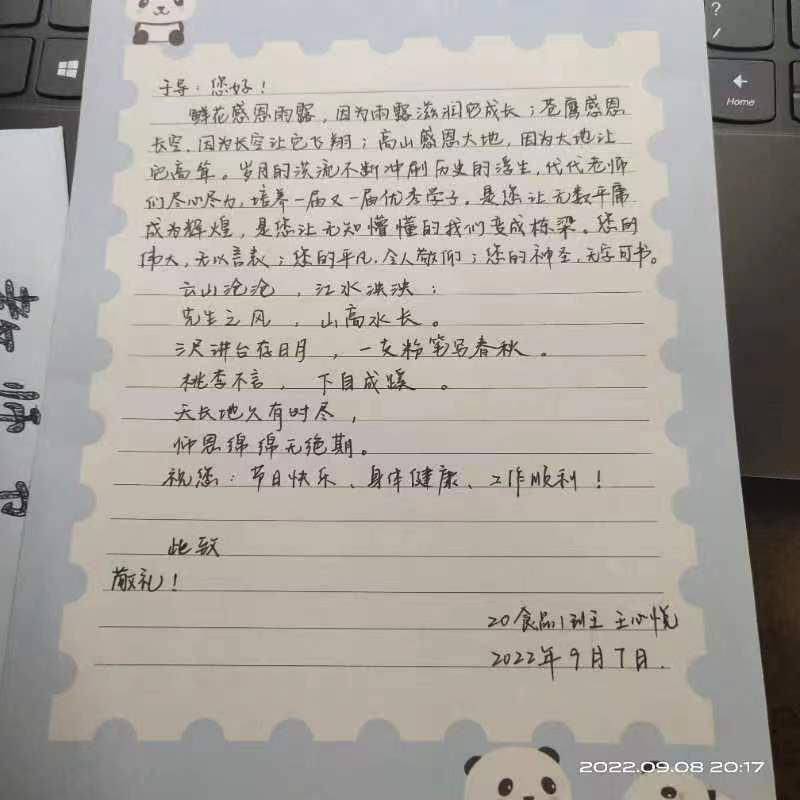 于导：您好！
鲜花感恩雨露，因为雨露滋润它成长；苍鹰感恩
长空，因为长空让它飞翔；高山感恩大地，因为大地让
它高耸。岁月的洪流不断冲刷历史的浮生，代代老师
们尽心尽力，培养一届又一届优秀学子。是您让无数平庸
成为辉煌，是您让无知懵懂的我们变成栋梁。您的
伟大，无以言表；您的平凡，令人敬仰；您的神圣，无字可书。
云山沧沧，江水泱泱；
先生之风，山高水长。
三尺讲台存日月，一支粉笔写春秋。
桃李不言，下自成蹊。
天长地久有时尽，
师恩绵绵无绝期。
祝您：节日快乐、身体健康、工作顺利！
此致
敬礼！
20食品1班 王心悦
2022年9月7日.
老师
?
/
Home
2022.09.08 20:17